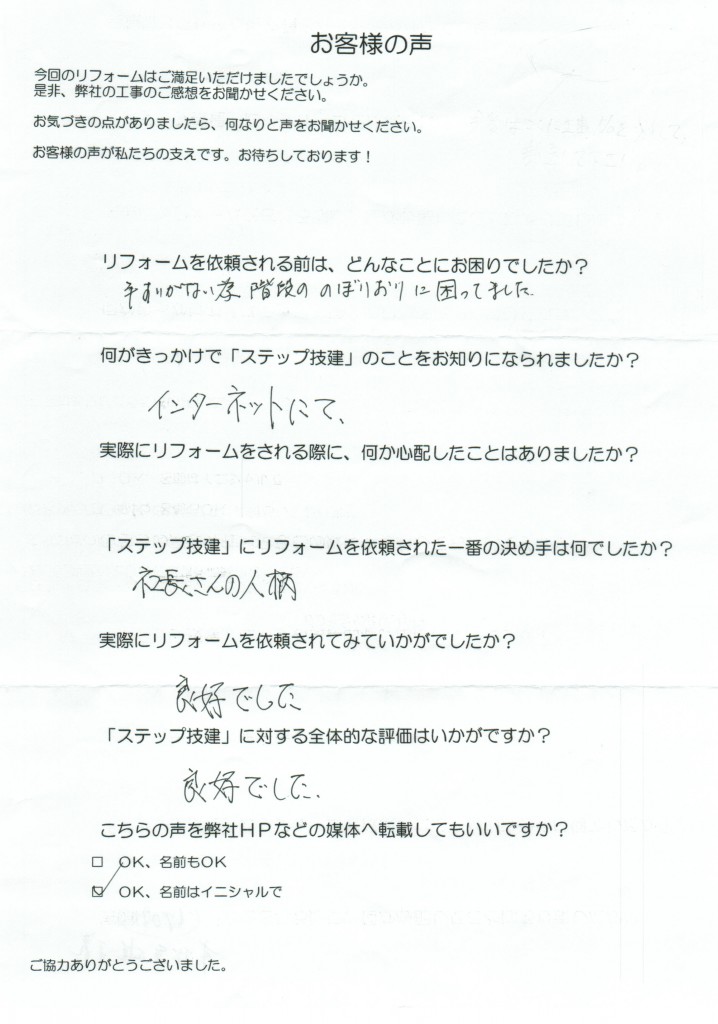 お客様の声
今回のリフォームはご満足いただけましたでしょうか。
是非、弊社の工事のご感想をお聞かせください。
お気づきの点がありましたら、何なりと声をお聞かせください。
お客様の声が私たちの支えです。お待ちしております！
リフォームを依頼される前は、どんなことにお困りでしたか？
手すりがない為 階段の のぼりおりに困ってました
何がきっかけで「ステップ技建」のことをお知りになられましたか？
インターネットにて、
実際にリフォームをされる際に、何か心配したことはありましたか？
「ステップ技建」にリフォームを依頼された一番の決め手は何でしたか？
社長さんの人柄
実際にリフォームを依頼されてみていかがでしたか？
良好でした
「ステップ技建」に対する全体的な評価はいかがですか？
良好でした、
こちらの声を弊社ＨＰなどの媒体へ転載してもいいですか？
□ OK、名前もOK
☑ OK、名前はイニシャルで
ご協力ありがとうございました。